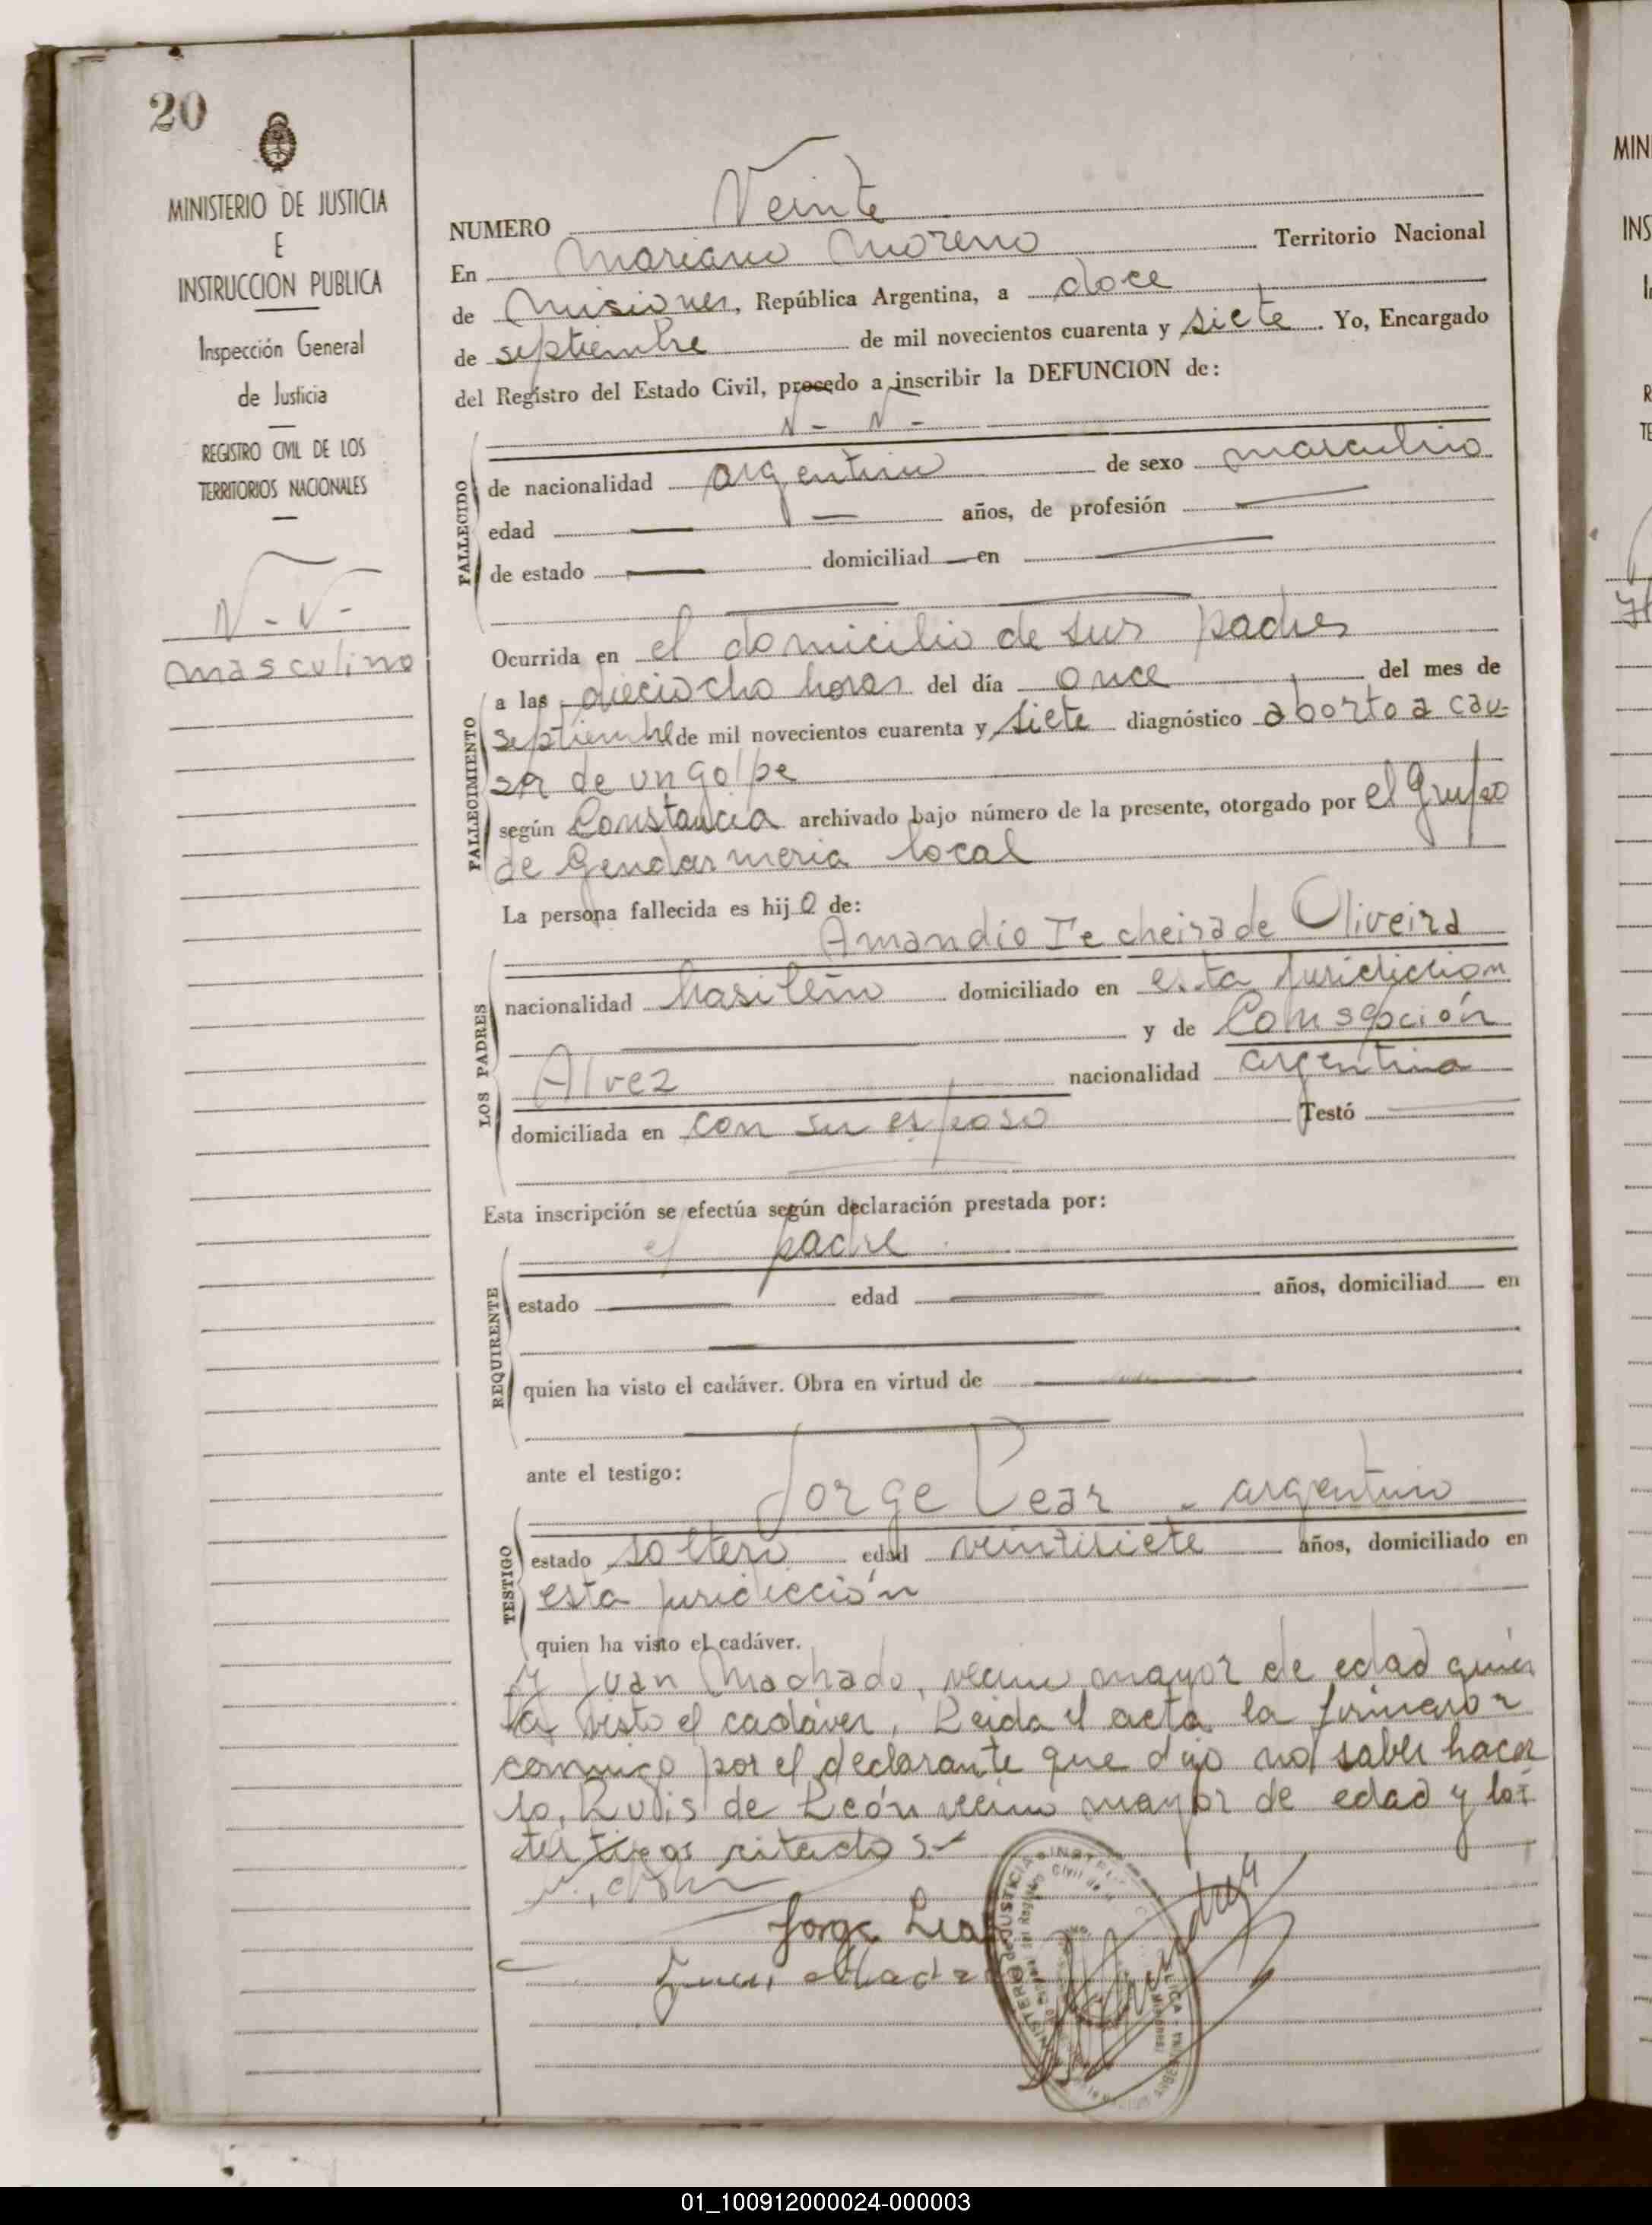 20
MINISTERIO DE JUSTICIA
E
INSTRUCCION PUBLICA
Inspección General
de Justicia
REGISTRO CIVIL DE LOS
TERRITORIOS NACIONALES
N - N -
masculino
NUMERO Veinte
En Mariano Moreno Territorio Nacional
de Misiones, República Argentina, a doce
de septiembre de mil novecientos cuarenta y siete. Yo, Encargado
del Registro del Estado Civil, procedo a inscribir la DEFUNCION de:
N - N -
FALLECIDO
de nacionalidad argentino de sexo masculino
edad — — años, de profesión —
de estado — domiciliad — en —
Ocurrida en el domicilio de sus padres
FALLECIMIENTO
a las dieciocho horas del día once del mes de
septiembre de mil novecientos cuarenta y siete diagnóstico aborto a cau-
sa de un golpe
según Constancia archivado bajo número de la presente, otorgado por el Grupo
de Gendarmeria local
La persona fallecida es hijo de:
LOS PADRES
Amandio Techeira de Oliveira
nacionalidad brasileño domiciliado en esta juridiccion
y de Consepción
Alvez nacionalidad argentina
domiciliada en con su esposo Testó —
Esta inscripción se efectúa según declaración prestada por:
REQUIRENTE
el padre
estado — edad — años, domiciliad en
quien ha visto el cadáver. Obra en virtud de —
ante el testigo:
TESTIGO
Jorge Lear - argentino
estado soltero edad veintisiete años, domiciliado en
esta juridicción
quien ha visto el cadáver.
y Juan Machado, vecino mayor de edad quien
ha visto el cadáver. Leida el acta la firmaron
conmigo por el declarante que dijo no saber hacer
lo, de León vecino mayor de edad y los
testigos citados.-
Jorge Lear
MIN
INS
TE
01_100912000024-000003